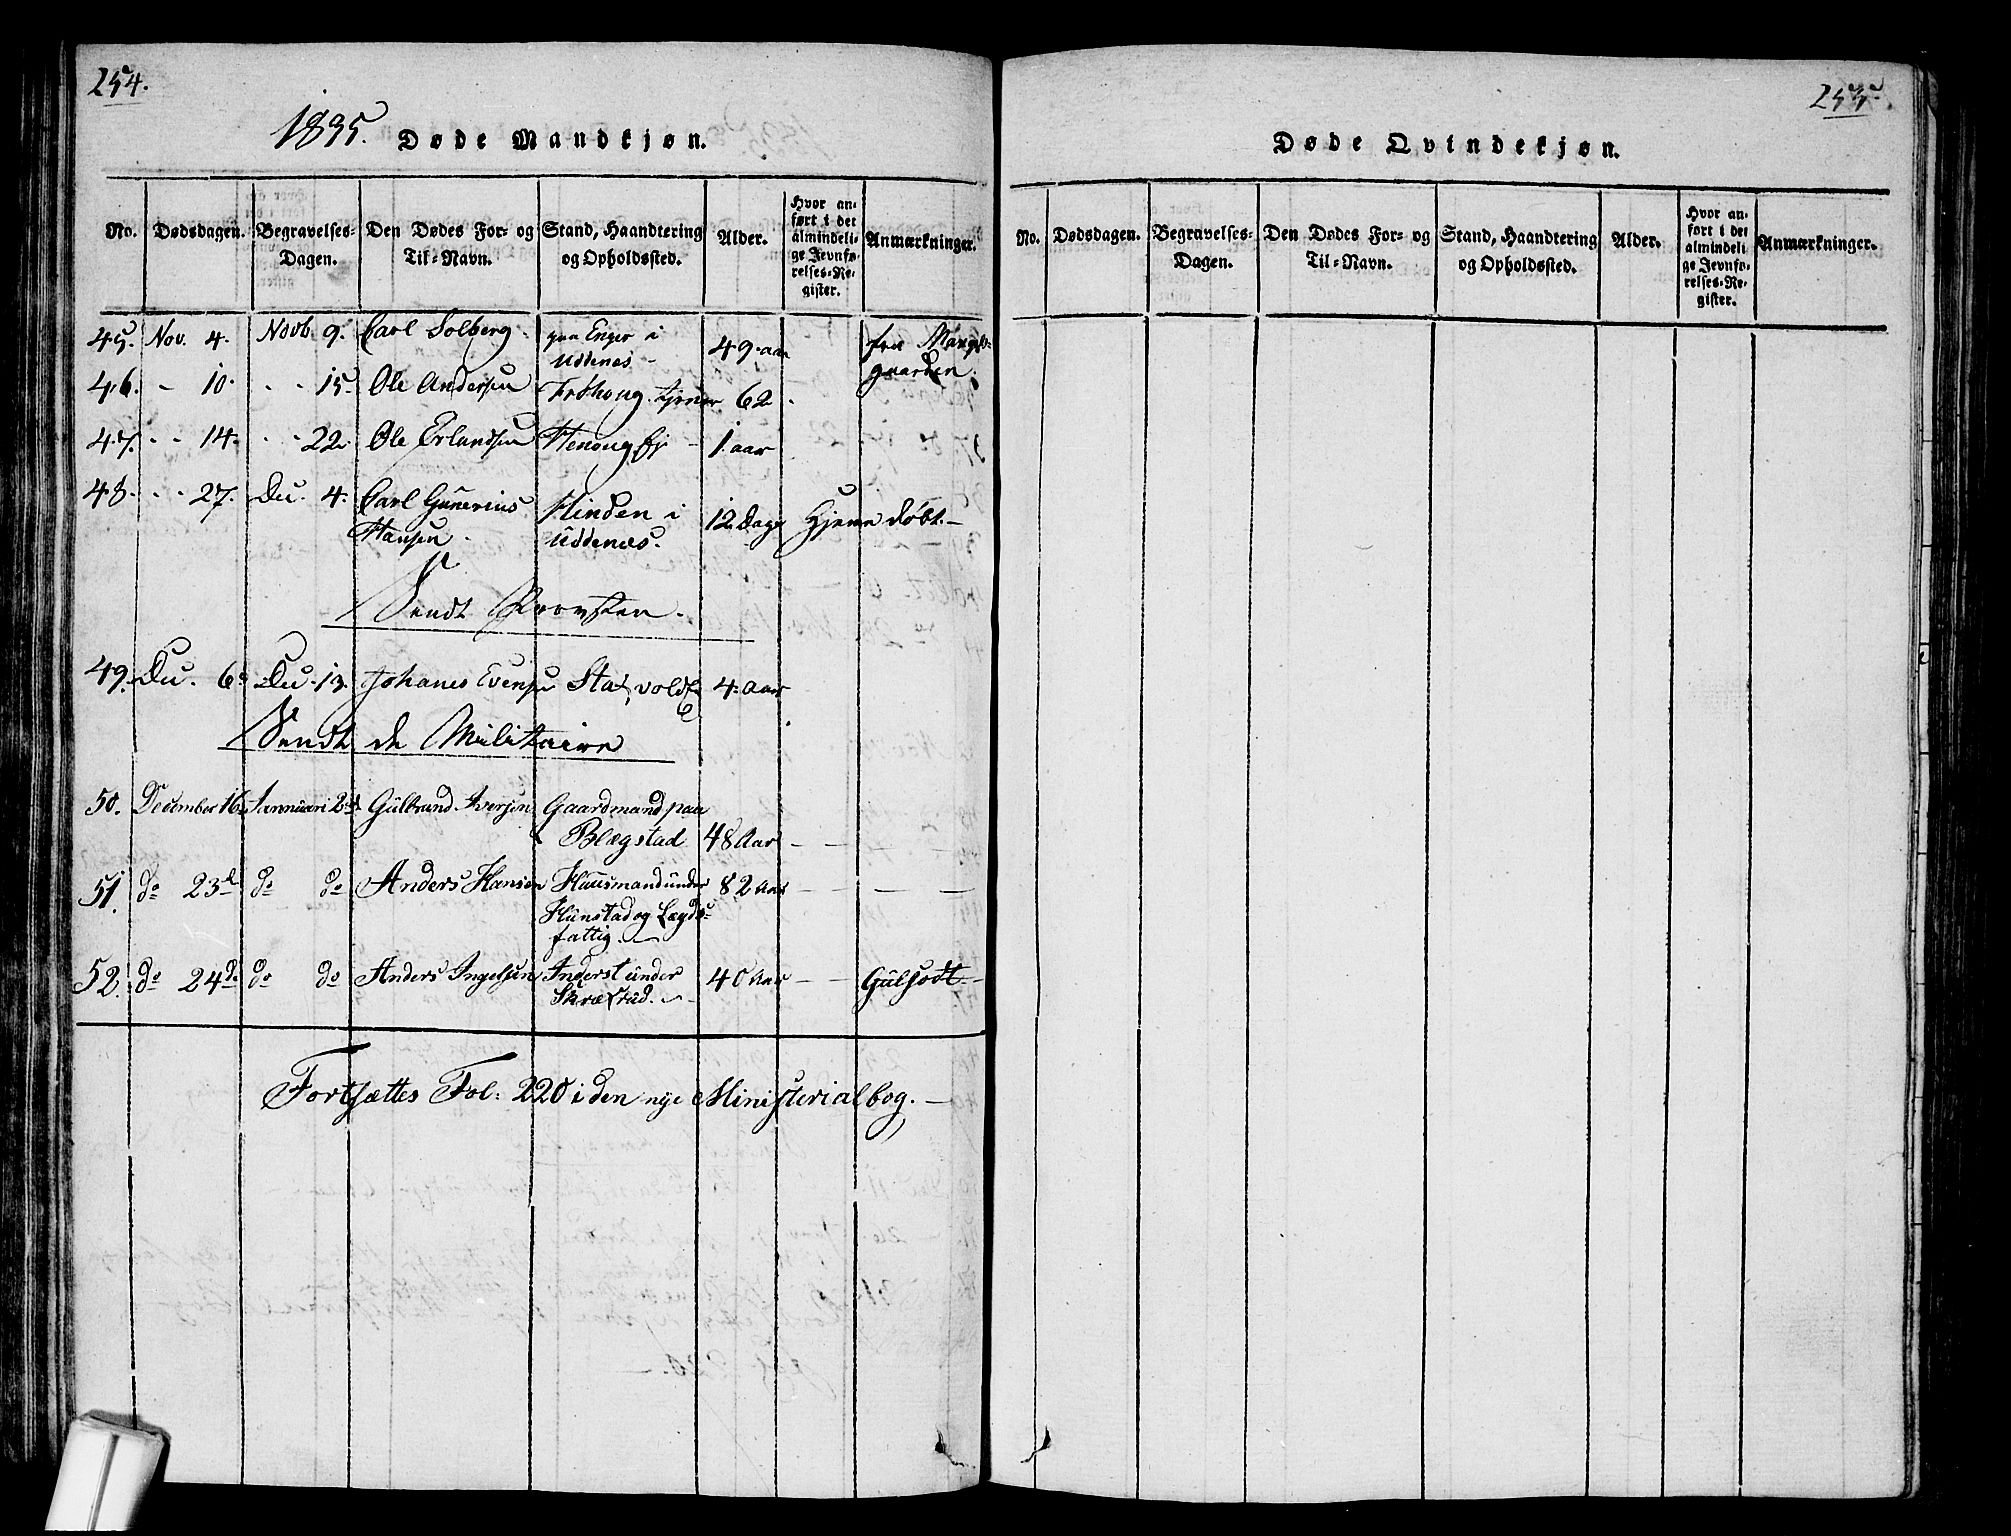 254.
1835. Døde Mandkjøn.
No. Dødsdagen. Begravelses-Dagen. Den Dødes For- og Til-Navn. Stand, Haandtering og Opholdssted. Alder. Hvor anført i det almindelige Jevnførelses-Register. Anmærkninger.
45. Nov. 4. Novb. 9. Carl Solberg. paa Enger i 49 aar fra Mangfs-
Uddenæs - gaarden.
46. - 10. - - 15. Ole Andersen tjener 62
47. - - 14. - - 22. Ole Erlandsen 1 aar
48. - - 27. Dec. 4. Carl Gunerius Hinden i 12 Dage Hjemme døbt.-
Hansen. Uddenæs.
Sendt Provsten.
49. Dec. 6. Dec. 13. Johanes Evensen 4 Aar
Sendt de Militaire
50. December 16 Jannuari 2d Gulbrand Iversen Gaardmand paa
Blægstad 48 Aar - - -
51. do 23d do do Anders Hansen Huusmand under 82 Aar - - - -
Hunstad og Lægds-
fattig.
52. do 24de do do Anders Ingelsen under 40 Aar - - Gulsodt-
Skræfrud.
Fortsættes Fol: 220 i den nye Ministerialbog. -
255.
Døde Qvindekjøn.
No. Dødsdagen. Begravelses-Dagen. Den Dødes For- og Til-Navn. Stand, Haandtering og Opholdssted. Alder. Hvor anført i det almindelige Jevnførelses-Register. Anmærkninger.